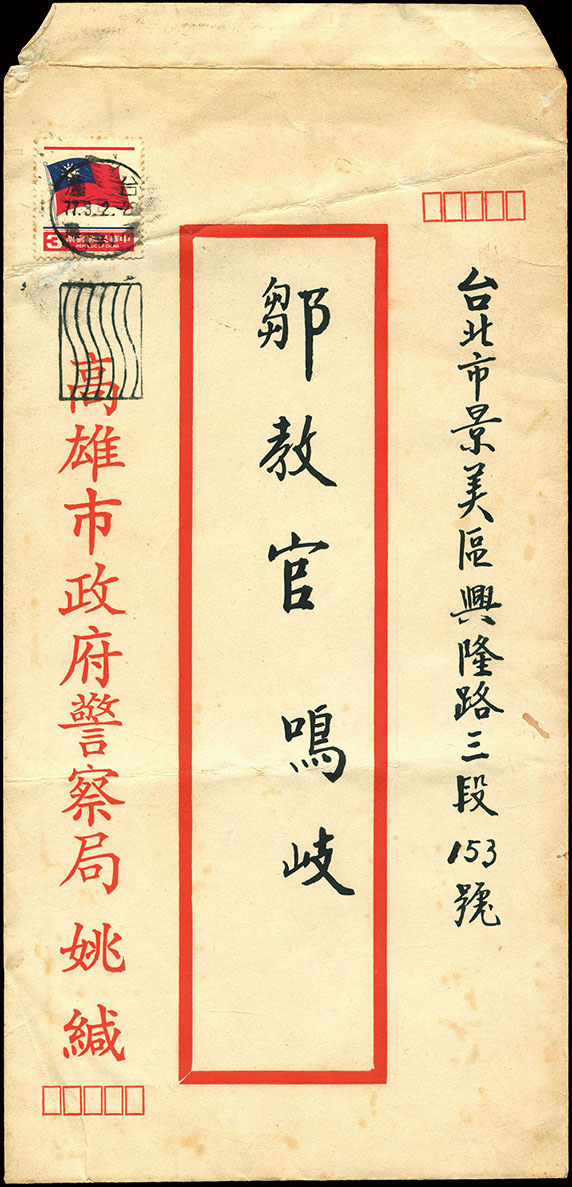 台北市景美區興隆路三段153號
鄒教官 鳴岐
高雄市政府警察局 姚 緘
台
77.3.2
3
中華民國郵票
REPUBLIC OF CHINA